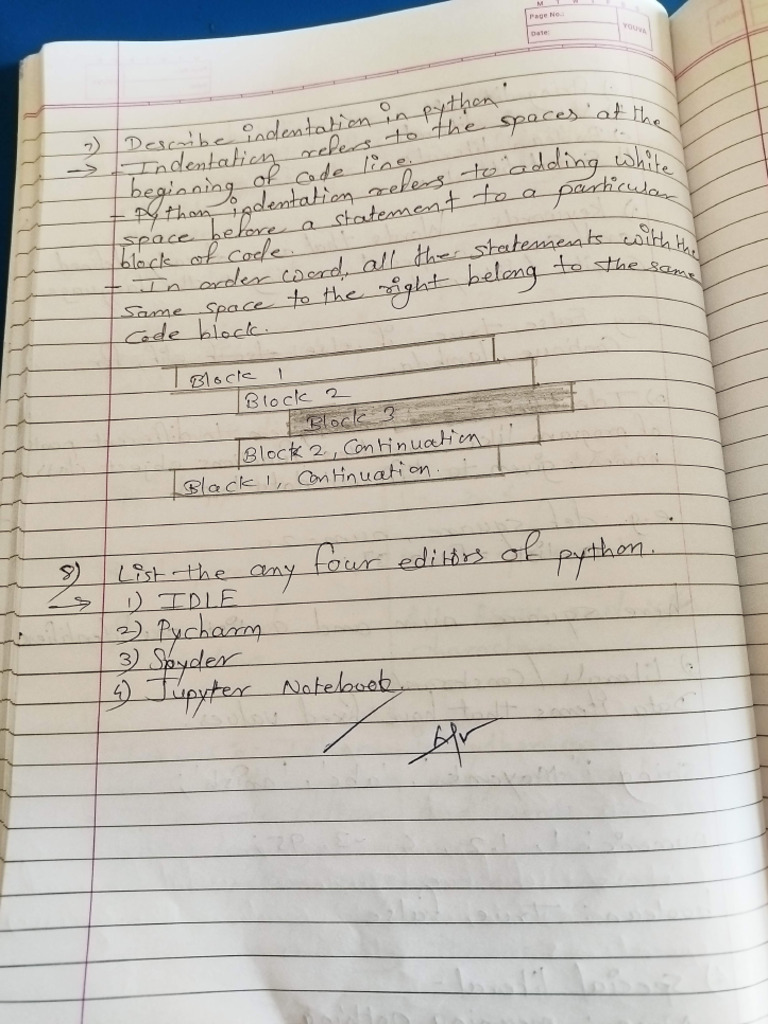 Page No.:
Date:
YOUVA
7) Describe indentation in python.
→ - Indentation refers to the spaces at the
beginning of code line.
- Python indentation refers to adding white
space before a statement to a particular
block of code.
- In order word, all the statements with the
same space to the right belong to the same
code block.
Block 1
Block 2
Block 3
Block 2, Continuation
Block 1, Continuation.
8) List the any four editors of python.
→ 1) IDLE
2) Pycharm
3) Spyder
4) Jupyter Notebook.